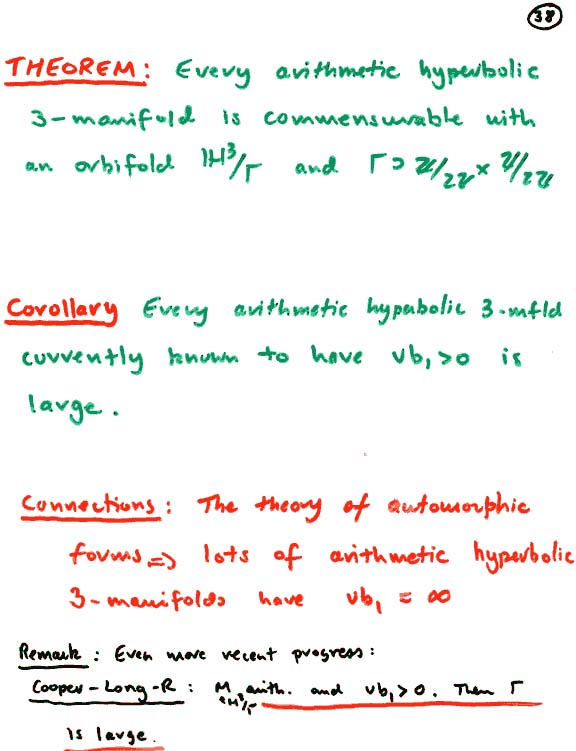 38
THEOREM: Every arithmetic hyperbolic
3-manifold is commensurable with
an orbifold ℍ³/Γ and Γ ⊃ ℤ/2ℤ × ℤ/2ℤ
Corollary Every arithmetic hypabolic 3-mfld
currently known to have vb₁>0 is
large.
Connections: The theory of automorphic
forms ⇒ lots of arithmetic hyperbolic
3-manifolds have vb₁ = ∞
Remark: Even more recent progress:
Cooper-Long-R: M arith. and vb₁>0. Then Γ
=ℍ³/Γ
is large.